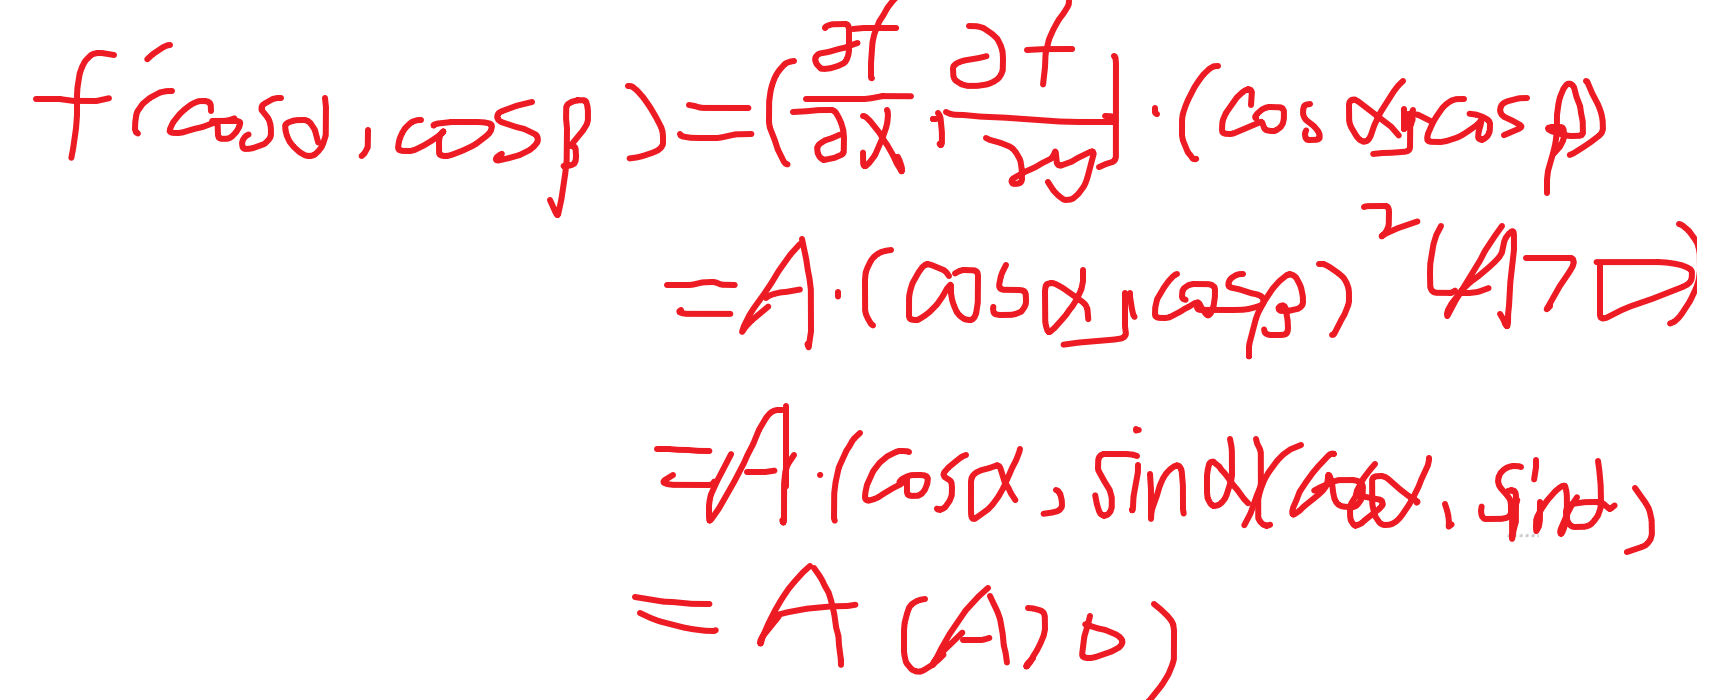 f'(cosα, cosβ) = (∂f/∂x, ∂f/∂y) · (cosα, cosβ)
= A · (cosα, cosβ)² (A>0)
= A · (cosα, sinα)(cosα, sinα)
= A (A>0)